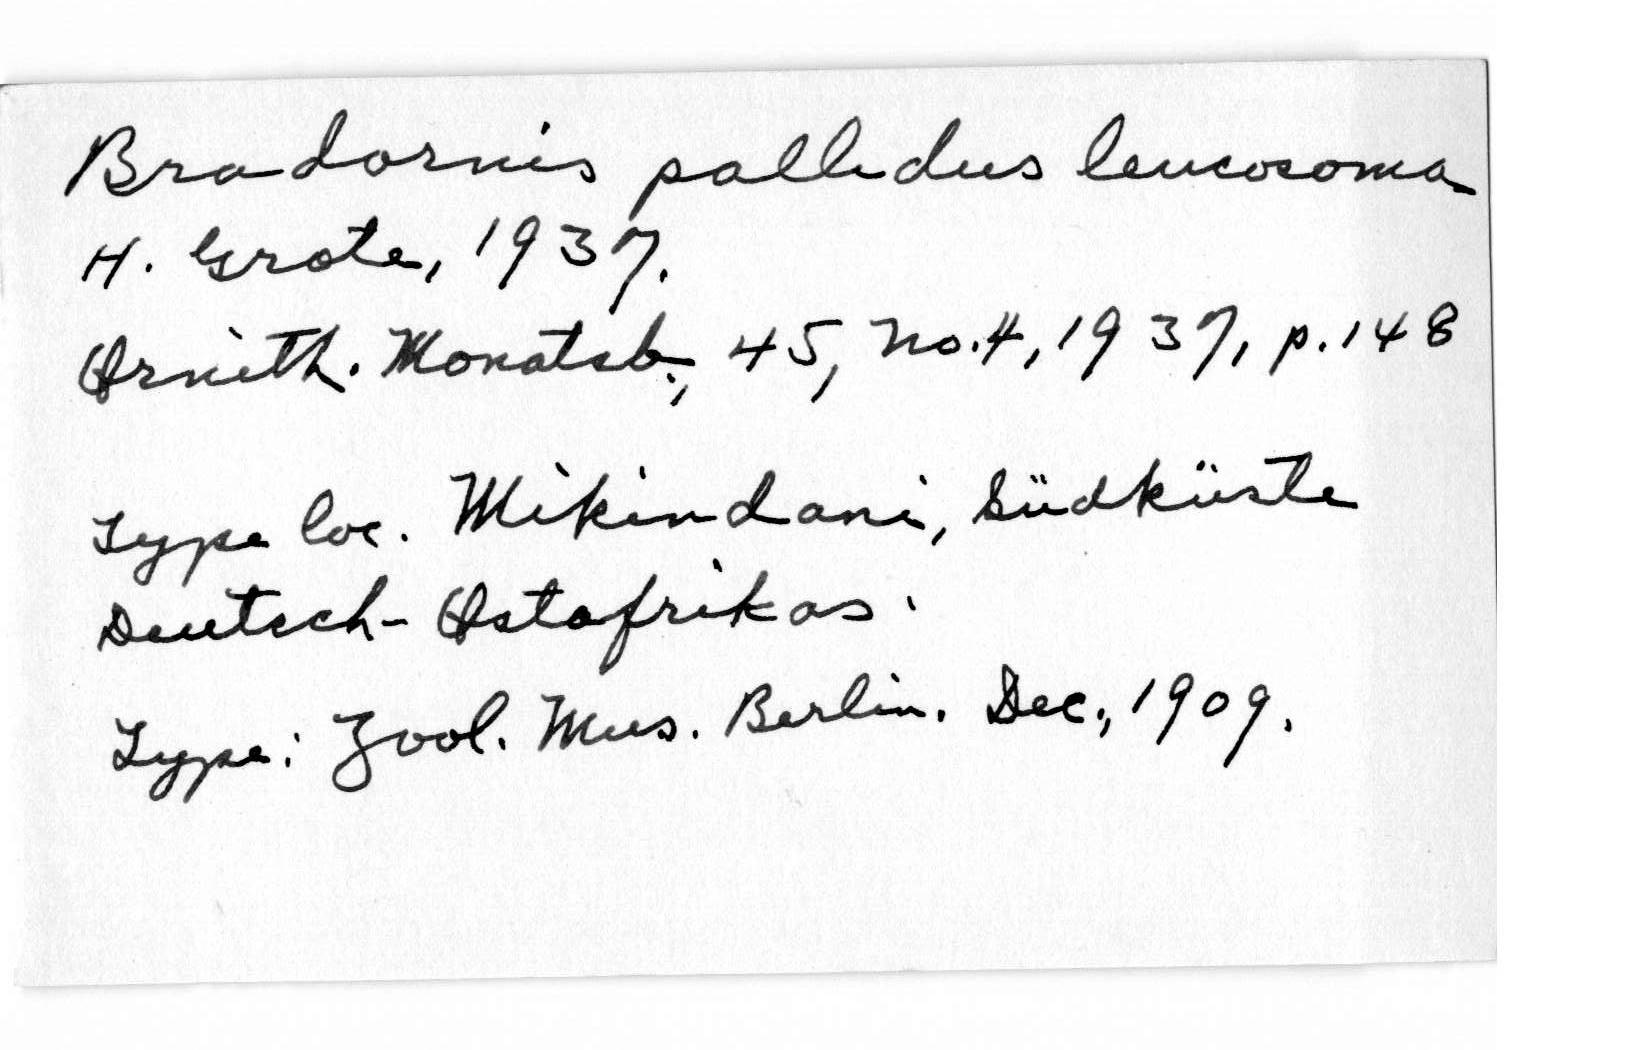 Bradornis pallidus leucosoma
H. Grote, 1937.
Ornith. Monatsb., 45, No. 4, 1937, p. 148
Type loc. Mikindani, Südküste
Deutsch-Ostafrikas.
Type: Zool. Mus. Berlin. Dec., 1909.